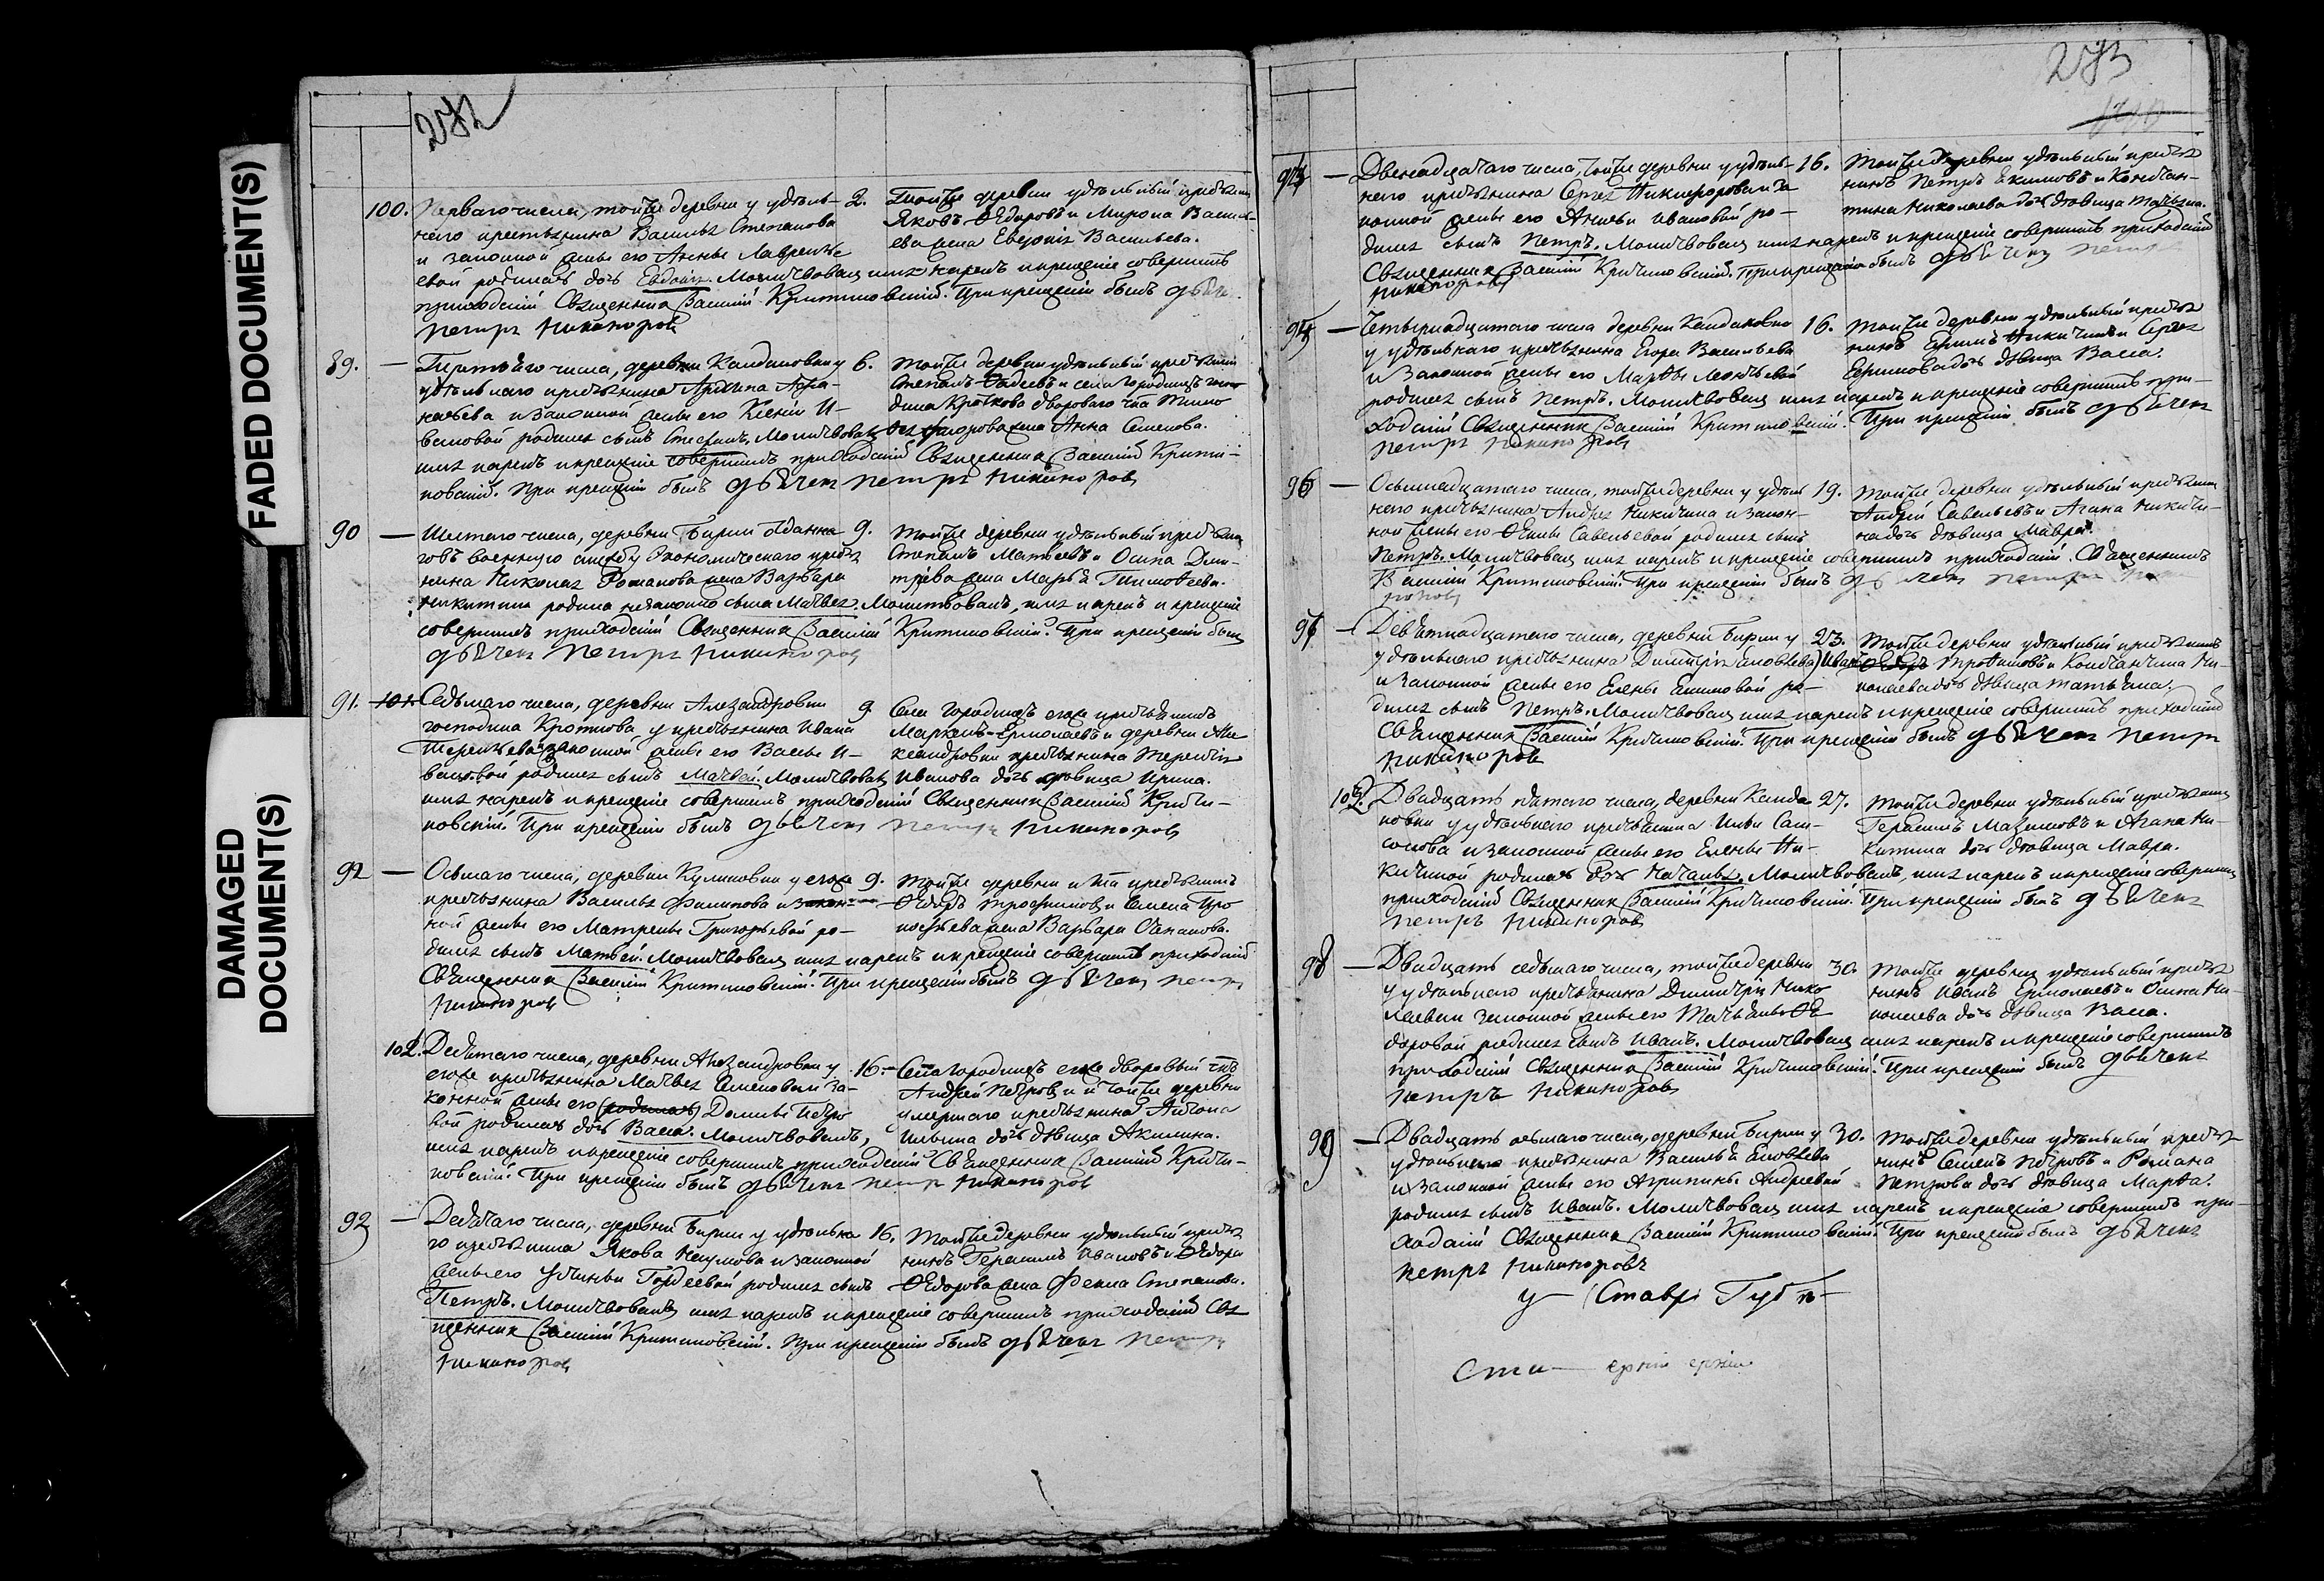 FADED DOCUMENT(S)
DAMAGED
DOCUMENT(S)
272
100. Перваго числа, тойже деревни у удѣль- 2. Тойже деревни удѣльный крестьянинъ
наго крестьянина Василья Степанова Яковъ Ѳедоровъ и Мирона Василь-
и законной жены его Анны Лаврентье ева жена Евдокія Васильева.
евой родилась дочь Евдокія. Молитвовалъ имя нарекъ и крещеніе совершилъ
приходскій Священникъ Василій. При крещеніи былъ дьячекъ
Петръ Никаноровъ
89. — Третьяго числа, деревни у 6. Тойже деревни удѣльный крестьянинъ
удѣльнаго крестьянина Афа- Степанъ Фадеевъ и села Городищъ госпо
насьева и законной жены его Ксеніи И- дина Кроткова двороваго
вановой родился сынъ Стефанъ. Молитвовалъ жена Анна Семенова.
имя нарекъ и крещеніе совершилъ приходскій Священникъ Василій
При крещеніи былъ дьячекъ Петръ Никаноровъ
90 — Шестаго числа, деревни Бирли 9. Тойже деревни удѣльный крестьянинъ
въ военную службу Экономическаго кресть Степанъ Матвѣевъ и Осипа Дми-
нина Николая Романова жена Варвара тріева жена Марья Тимоѳеева.
Никитина родила незаконно сына Матвея. Молитвовалъ, имя нарекъ и крещеніе
совершилъ приходскій Священникъ Василій. При крещеніи былъ
дьячекъ Петръ Никаноровъ
91. 101. Седьмаго числа, деревни Александровки 9 Села Городищъ егоже крестьянинъ
господина Кроткова у крестьянина Ивана Маркелъ Ермолаевъ и деревни Але
Терентьева и законной жены его Вассы И- ксандровки крестьянина Терентія
вановой родился сынъ Матвей. Молитвовалъ Иванова дочь дѣвица Ирина.
имя нарекъ и крещеніе совершилъ приходскій Священникъ Василій
При крещеніи былъ дьячекъ Петръ Никаноровъ
92 — Осьмаго числа, деревни Куликовки у егоже 9. Тойже деревни крестьянинъ
крестьянина Василья Филипова и закон- Ѳедоръ Трофимовъ и Семена Про
ной жены его Матрены Григорьевой ро- кофьева жена Варвара
дился сынъ Матвей. Молитвовалъ имя нарекъ и крещеніе совершилъ приходскій
Священникъ Василій. При крещеніи былъ дьячекъ Петръ
Никаноровъ
102. Девятаго числа, деревни Александровки у 16. Села Городищъ егоже дворовый
егоже крестьянина Матвея Семенова и за- Андрей Петровъ и тойже деревни
конной жены его (родилась) Домны Петро умершаго крестьянина Антона
вой родилась дочь Васса. Молитвовалъ, Ильина дочь дѣвица Акилина.
имя нарекъ и крещеніе совершилъ приходскій Священникъ Василій
При крещеніи былъ дьячекъ Петръ Никаноровъ
93 — Девятаго числа, деревни Бирли у удѣльна 16. Тойже деревни удѣльный кресть
го крестьянина Якова Наумова и законной нинъ Герасимъ Ивановъ и Ѳедора
жены его Устиньи Гордеевой родился сынъ Ѳедорова жена Фекла Степанова.
Петръ. Молитвовалъ имя нарекъ и крещеніе совершилъ приходскій Свя
щенникъ Василій. При крещеніи былъ дьячекъ Петръ
Никаноровъ
273
94 — Двенадцатаго числа, тойже деревни у удѣль- 16. Тойже деревни удѣльный кресть
наго крестьянина Сергея Никифорова и за нинъ Петръ Екимовъ и Констан-
конной жены его Аксиньи Ивановой ро- тина Николаева дочь дѣвица Татьяна.
дился сынъ Петръ. Молитвовалъ имя нарекъ и крещеніе совершилъ приходскій
Священникъ Василій. При крещеніи былъ дьячекъ Петръ
Никаноровъ
95 — Четырнадцатаго числа деревни 16. Тойже деревни удѣльный кресть
у удѣльнаго крестьянина Егора Васильева нинъ Ефимъ Никитинъ и Сергея
и законной жены его Марѳы Леонтьевой Ефимова дочь дѣвица Васса.
родился сынъ Петръ. Молитвовалъ имя нарекъ и крещеніе совершилъ при-
ходскій Священникъ Василій. При крещеніи былъ дьячекъ
Петръ Никаноровъ
96 — Осьмнадцатаго числа, тойже деревни у удѣль 19. Тойже деревни удѣльный крестьянинъ
наго крестьянина Андрея Никитина и закон- Андрей Савельевъ и Агапа Никити-
ной жены его Ѳеклы Савельевой родился сынъ на дочь дѣвица Мавра.
Петръ. Молитвовалъ имя нарекъ и крещеніе совершилъ приходскій Священникъ
Василій. При крещеніи былъ дьячекъ Петръ Ника
норовъ
97 — Девятнадцатаго числа, деревни Бирли у 23. Тойже деревни удѣльный крестьянинъ
удѣльнаго крестьянина Димитрія Иванъ Трофимовъ и Константина Ни-
и законной жены его Елены Екимовой ро- колаева дочь дѣвица Татьяна.
дился сынъ Петръ. Молитвовалъ имя нарекъ и крещеніе совершилъ приходскій
Священникъ Василій. При крещеніи былъ дьячекъ Петръ
Никаноровъ
103. Двадцать пятаго числа, деревни 27. Тойже деревни удѣльный крестьянинъ
у удѣльнаго крестьянина Ильи Сам- Герасимъ Максимовъ и Агапа Ни-
сонова и законной жены его Елены Ни- китина дочь дѣвица Мавра.
китиной родилась дочь Наталья. Молитвовалъ, имя нарекъ и крещеніе совершилъ
приходскій Священникъ Василій. При крещеніи былъ дьячекъ
Петръ Никаноровъ
98 — Двадцать седьмаго числа, тойже деревни 30. Тойже деревни удѣльный кресть
у удѣльнаго крестьянина Димитрія Нико нинъ Иванъ Ермолаевъ и Осипа Ни-
лаева и законной жены его Татьяны Ѳе колаева дочь дѣвица Васса.
доровой родился сынъ Иванъ. Молитвовалъ имя нарекъ и крещеніе совершилъ
приходскій Священникъ Василій. При крещеніи былъ дьячекъ
Петръ Никаноровъ
99 — Двадцать осьмаго числа, деревни Бирли у 30. Тойже деревни удѣльный кресть-
удѣльнаго крестьянина Василья нинъ Семенъ Петровъ и Романа
и законной жены его Агрипины Андреевой Петрова дочь дѣвица Марѳа.
родился сынъ Иванъ. Молитвовалъ имя нарекъ и крещеніе совершилъ при-
ходскій Священникъ Василій. При крещеніи былъ дьячекъ
Петръ Никаноровъ